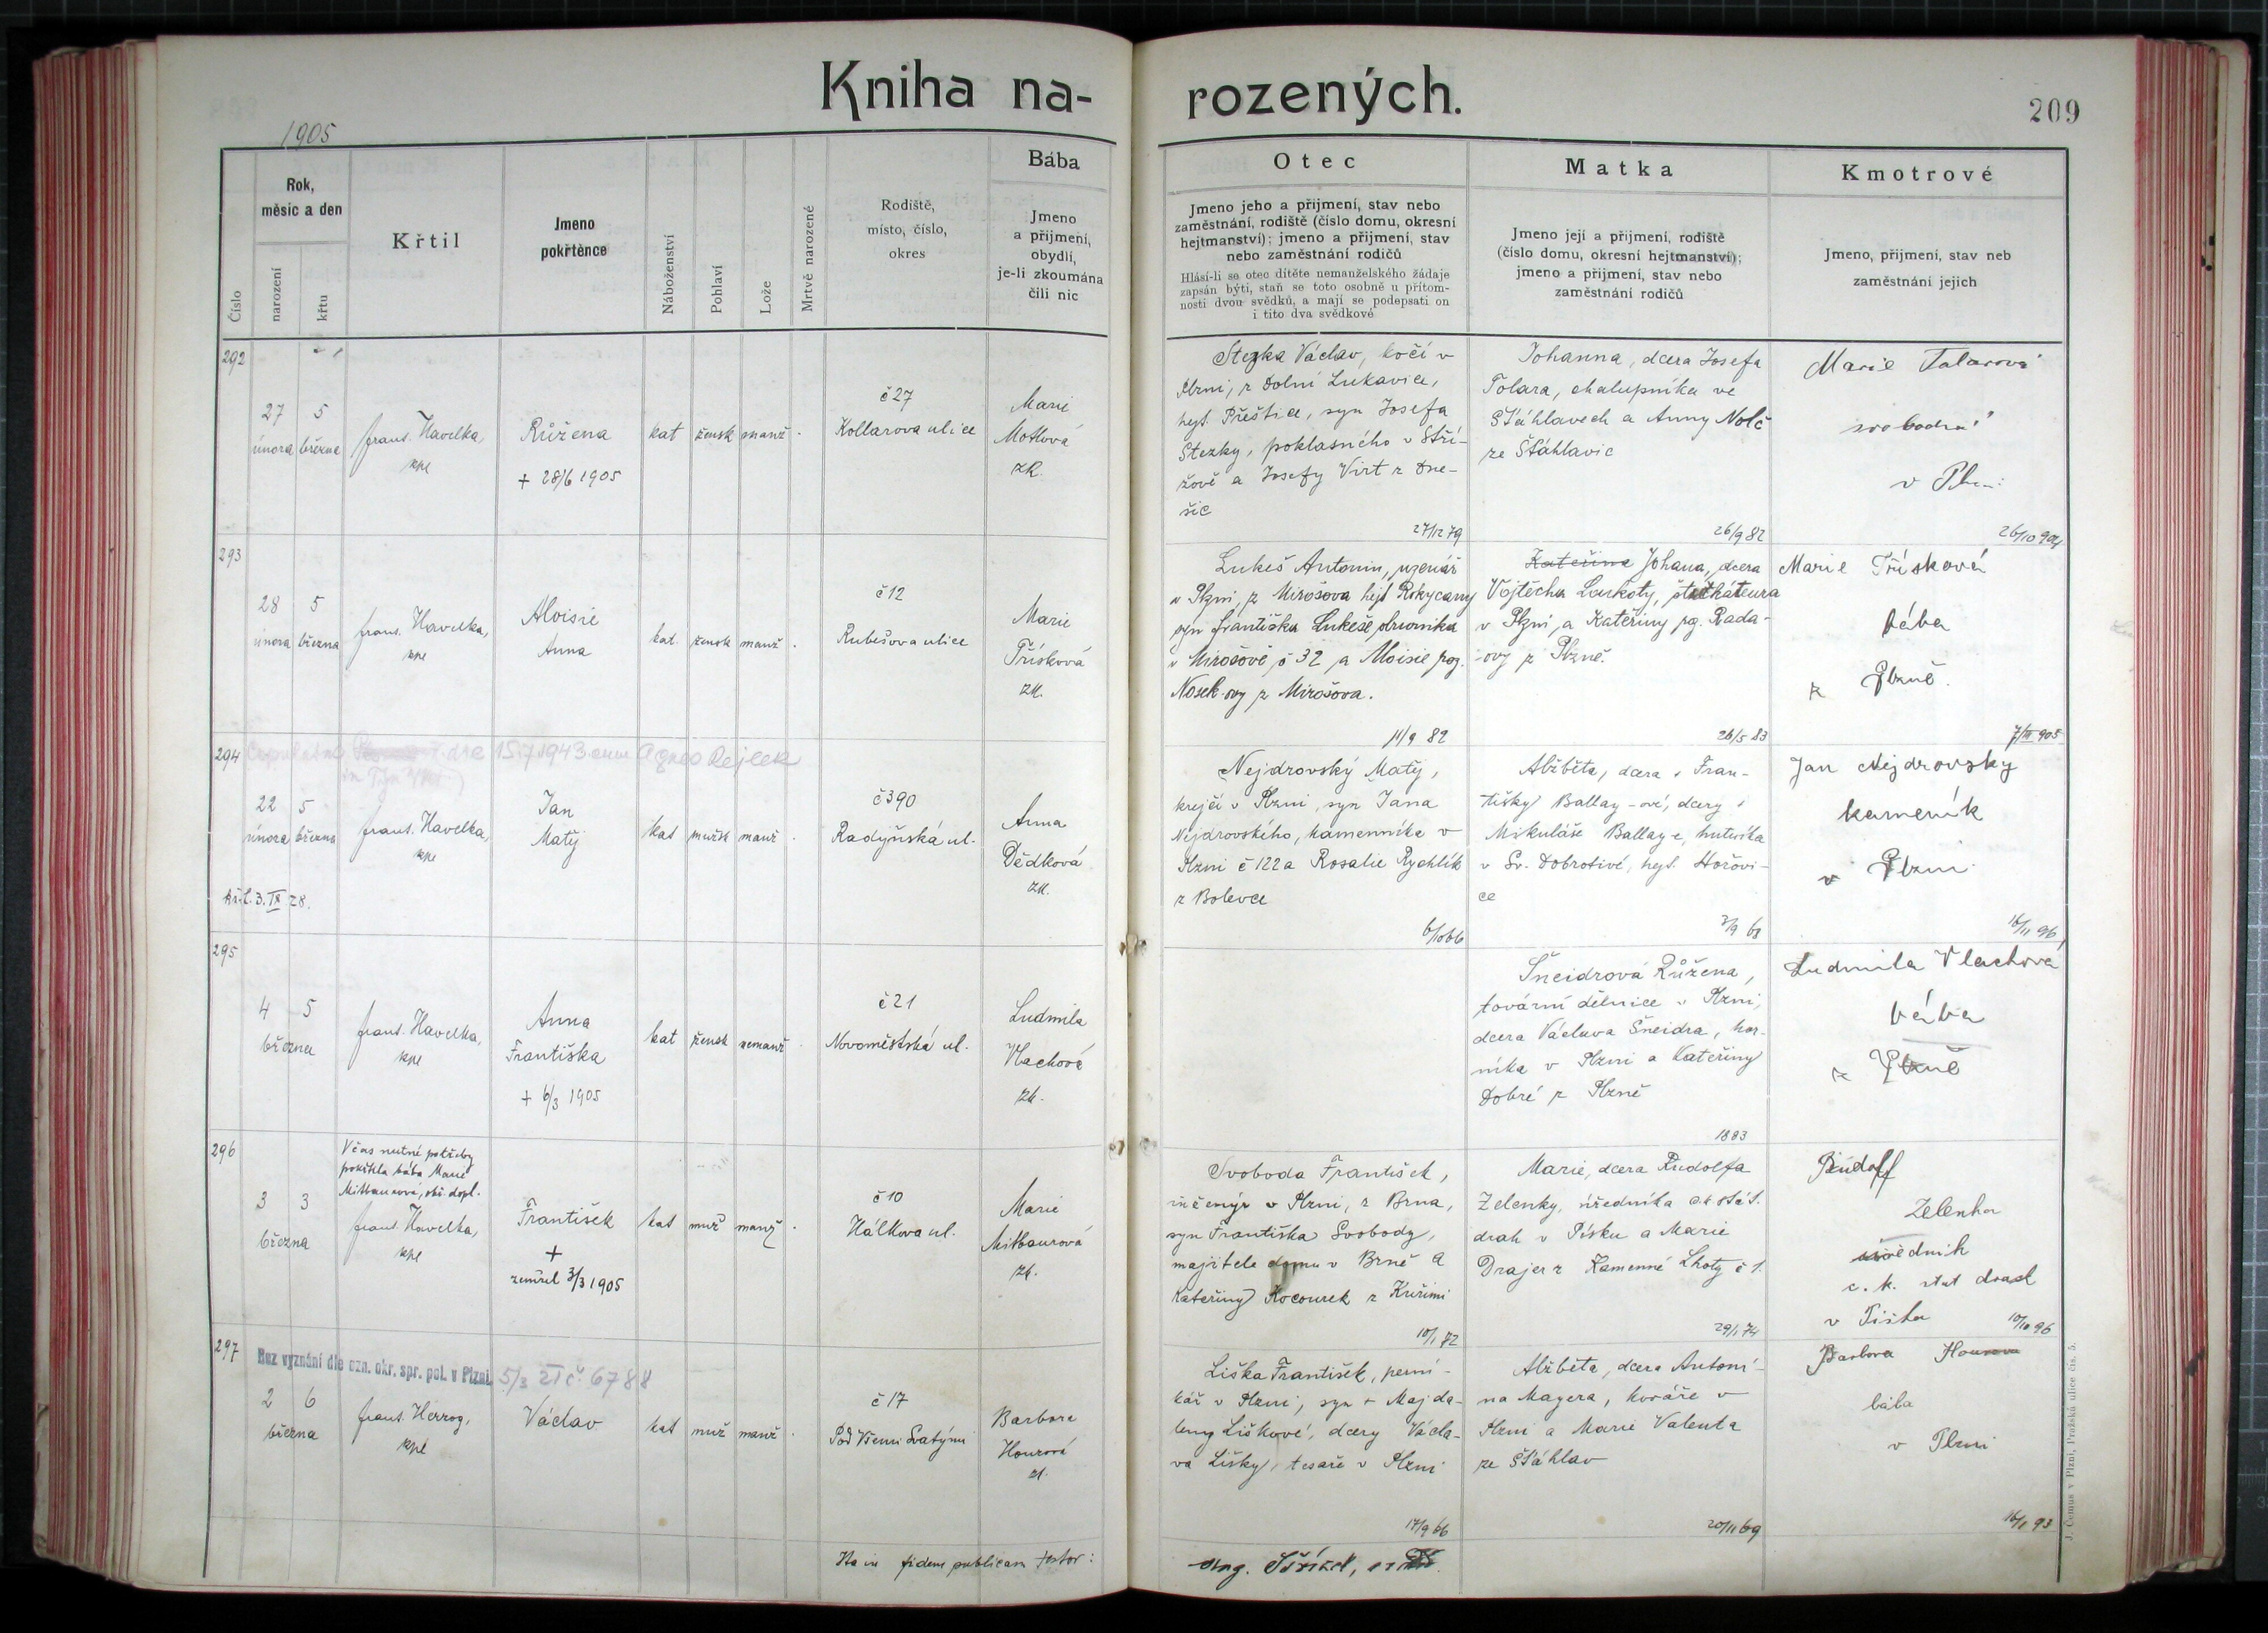 Kniha na-
rozených.
209
1905
Číslo
Rok,
měsíc a den
narození
křtu
Křtil
Jmeno
pokřtěnce
Náboženství
Pohlaví
Lože
Mrtvě narozené
Rodiště,
místo, číslo,
okres
Bába
Jmeno
a přijmení,
obydlí,
je-li zkoumána
čili nic
Otec
Jmeno jeho a přijmení, stav nebo
zaměstnání, rodiště (číslo domu, okresní
hejtmanství); jmeno a přijmení, stav
nebo zaměstnání rodičů
Hlásí-li se otec dítěte nemanželského žádaje
zapsán býti, staň se toto osobně u přítom-
nosti dvou svědků, a mají se podepsati on
i tito dva svědkové
Matka
Jmeno její a přijmení, rodiště
(číslo domu, okresní hejtmanství);
jmeno a přijmení, stav nebo
zaměstnání rodičů
Kmotrové
Jmeno, přijmení, stav neb
zaměstnání jejich
292
27 5
února března
frant. Havelka,
kpl
Růžena
+ 28/6 1905
kat
žensk
manž
č 27
Kollarova ulice
Marie
Motlová
zk.
Stezka Václav, kočí v
Plzni, z Dolní Lukavice,
hejt. Přeštice, syn Josefa
Stezky, poklasného v Stří-
žově a Josefy Virt z Dne-
šic
27/12 79
Johanna, dcera Josefa
Tolara, chalupníka ve
Šťáhlavech a Anny Nolč
ze Šťáhlavic
26/9 82
Marie Talarová
svobodná
v Plzni
26/10 904
293
28 5
února března
frant. Havelka,
kpl
Aloisie
Anna
kat.
žensk
manž
č 12
Rubešova ulice
Marie
Třísková
zk.
Lukeš Antonin, uzenář
v Plzni z Mirošova hejt Rokycany
syn Františka Lukeše
v Mirošově č 32 a Aloisie roz.
Nosek-ovy z Mirošova.
11/9 82
Kateřina Johana, dcera
Vojtěcha Loukoty, štukatéura
v Plzni a Kateřiny rz. Rada-
-ovy z Plzně.
26/5 83
Marie Třísková
bába
z Plzně.
7/II 905
294
dne 15.7.1943 cum Agnes Rejlek
22 5
února března
frant. Havelka,
kpl
3. IX 28.
Jan
Matěj
kat
mužsk
manž
č 390
Radyňská ul.
Anna
Dědková
zk.
Nejdrovský Matěj,
krejčí v Plzni, syn Jana
Nejdrovského, kamenníka v
Plzni č 122 a Rosalie Rychlík
z Bolevce
6/10 66
Alžběta, dcera + Fran-
tišky Ballay-ové, dcery +
Mikuláše Ballaye, hutníka
v Sv. Dobrotivé, hejt. Hořovi-
ce
3/9 63
Jan Nejdrovský
kameník
v Plzni
16/11 96
295
4 5
března
frant. Havelka,
kpl
Anna
Františka
+ 6/3 1905
kat
žensk
nemanž
č 21
Novoměstská ul.
Ludmila
Vlachová
zk.
Šneidrová Růžena,
tovární dělnice v Plzni,
dcera Václava Šneidra, hor-
níka v Plzni a Kateřiny
Dobré z Plzně
1883
Ludmila Vlachová
bába
z Plzně
296
3 3
března
V čas nutné potřeby
pokřtila bába Marie
Mitbaurová, obř. dopl.
frant. Havelka,
kpl
František
+
zemřel 3/3 1905
kat
muž
manž
č 10
Hálkova ul.
Marie
Mitbaurová
zk.
Svoboda František,
inženýr v Plzni, z Brna,
syn Františka Svobody,
majitele domu v Brně a
Kateřiny Kocourek z Kuřimi
10/1 72
Marie, dcera Rudolfa
Zelenky, úředníka ck stát.
drah v Písku a Marie
Drajer z Kamenné Lhoty č 1.
29/1 74
Rudolf
Zelenka
úředník
c. k. stat drah
v Písku
10/10 96
297
Bez vyznání dle ozn. okr. spr. pol. v Plzni
5/3 21 č. 6788
2 6
března
frant. Herzog,
kpl
Václav
kat
muž
manž
č 17
Pod Všemi Svatými
Barbora
Hourová
zk.
Liška František, perní-
kář v Plzni, syn + Majda-
leny Liškové, dcery Václa-
va Lišky, tesaře v Plzni
17/9 66
Alžběta, dcera Antoní-
na Mayera, kováře v
Plzni a Marie Valenta
ze Šťáhlav
20/11 69
Barbora Hourova
bába
v Plzni
16/1 93
Ita in fidem publicam testor:
J. Čomus v Plzni, Pražská ulice čís. 5.